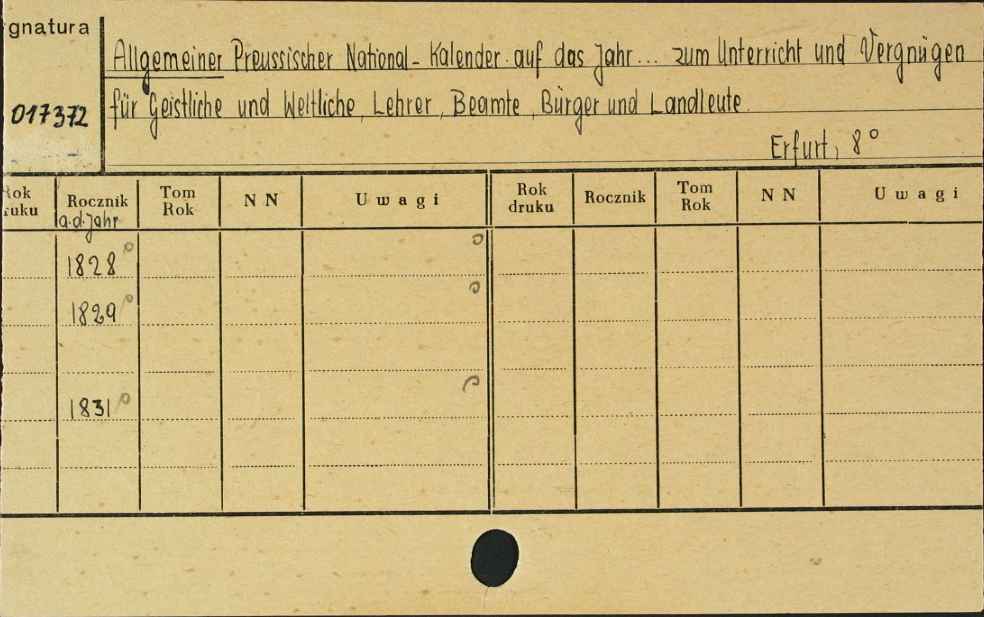 gnatura
017372
Allgemeiner Preussischer National-Kalender auf das Jahr... zum Unterricht und Vergnügen
für Geistliche und Weltliche, Lehrer, Beamte, Bürger und Landleute.
Erfurt, 8°
Rok ruku Rocznik Tom Rok N N Uwagi Rok druku Rocznik Tom Rok N N Uwagi
a.d. Jahr
1828
1829
1831